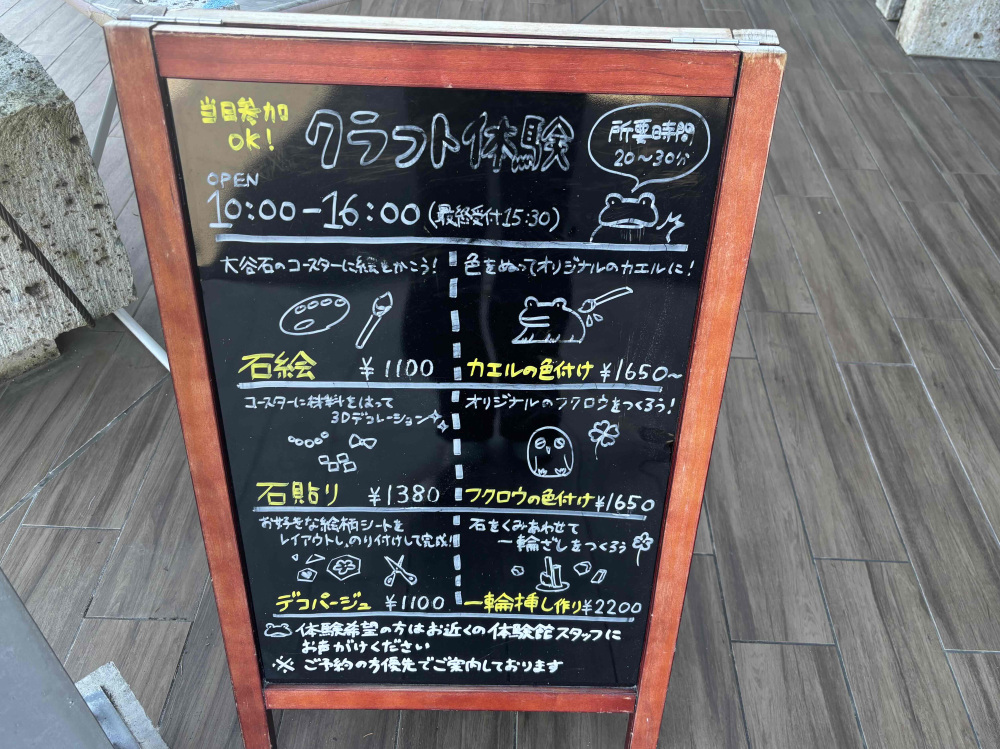 当日参加
OK!
クラフト体験
所要時間
20〜30分
OPEN
10:00-16:00(最終受付15:30)
大谷石のコースターに絵をかこう!
石絵 ¥1100
色をぬってオリジナルのカエルに!
カエルの色付け ¥1650〜
コースターに材料をはって
3Dデコレーション
石貼り ¥1380
オリジナルのフクロウをつくろう!
フクロウの色付け ¥1650
お好きな絵柄シートを
レイアウトし、のり付けして完成!
デコパージュ ¥1100
石をくみあわせて
一輪ざしをつくろう
一輪挿し作り ¥2200
体験希望の方はお近くの体験館スタッフに
お声がけください
※ ご予約の方優先でご案内しております